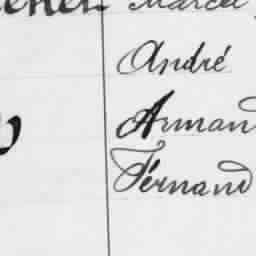 Marcel
André
Arman
Fernand